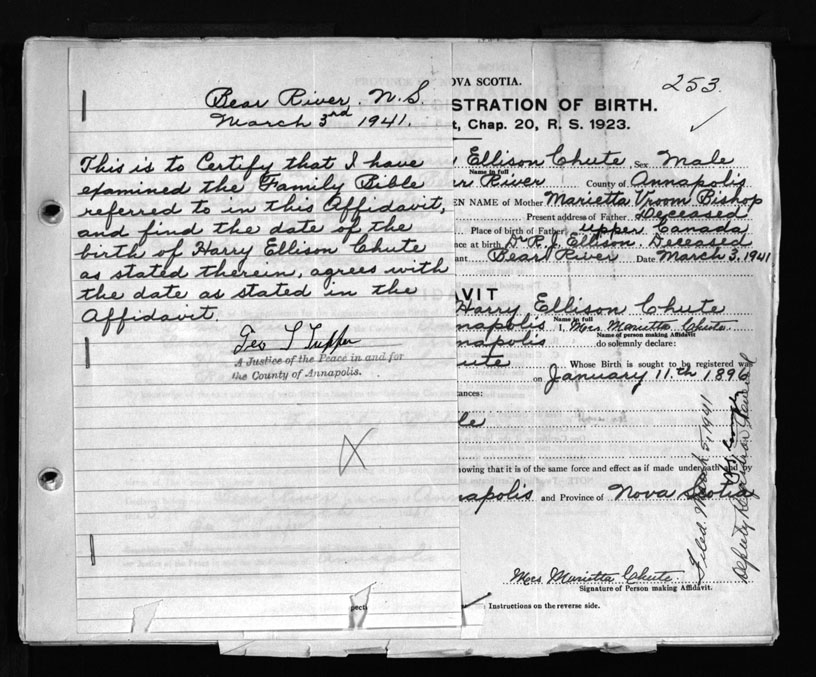 Bear River. N.S.
March 3rd 1941.
This is to Certify that I have
examined the Family Bible
referred to in this Affidavit,
and find the date of the
birth of Harry Ellison Chute
as stated therein, agrees with
the date as stated in the
Affidavit.
Geo S Tupper
A Justice of the Peace in and for
the County of Annapolis.
X
pecti
OVA SCOTIA.
253.
STRATION OF BIRTH.
t, Chap. 20, R. S. 1923.
Ellison Chute Sex Male
Name in full
River County of Annapolis
EN NAME of Mother Marietta Vroom Bishop
Present address of Father Deceased
Place of birth of Father Upper Canada
nce at birth Dr R. J. Ellison. Deceased
ant Bear River Date March 3, 1941
AVIT
Harry Ellison Chute
Name in full
nnapolis I, Mrs Marietta Chute
Name of person making Affidavit
nnapolis do solemnly declare:
ute Whose Birth is sought to be registered was
on January 11.th 1896
tances:
le
nowing that it is of the same force and effect as if made under oath and by
nnapolis and Province of Nova Scotia
Mrs Marietta Chute
Signature of Person making Affidavit.
Instructions on the reverse side.
Filed. March 5, 1941
Deputy Registrar General